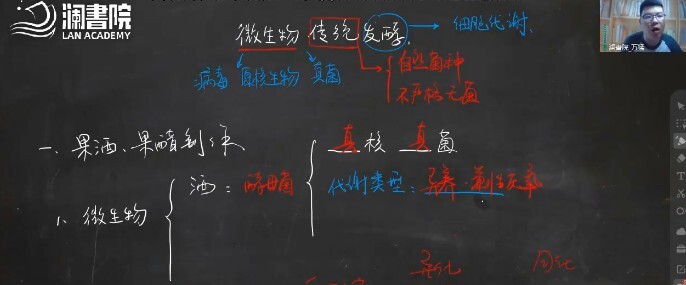 澜書院
LAN ACADEMY
微生物 传统 发酵 → 细胞代谢.
病毒 原核生物 真菌
自然菌种
不严格无菌
一、果酒、果醋制作
真核 真菌
酒：酵母菌
代谢类型：异养·兼性厌氧
1、微生物
异化 同化